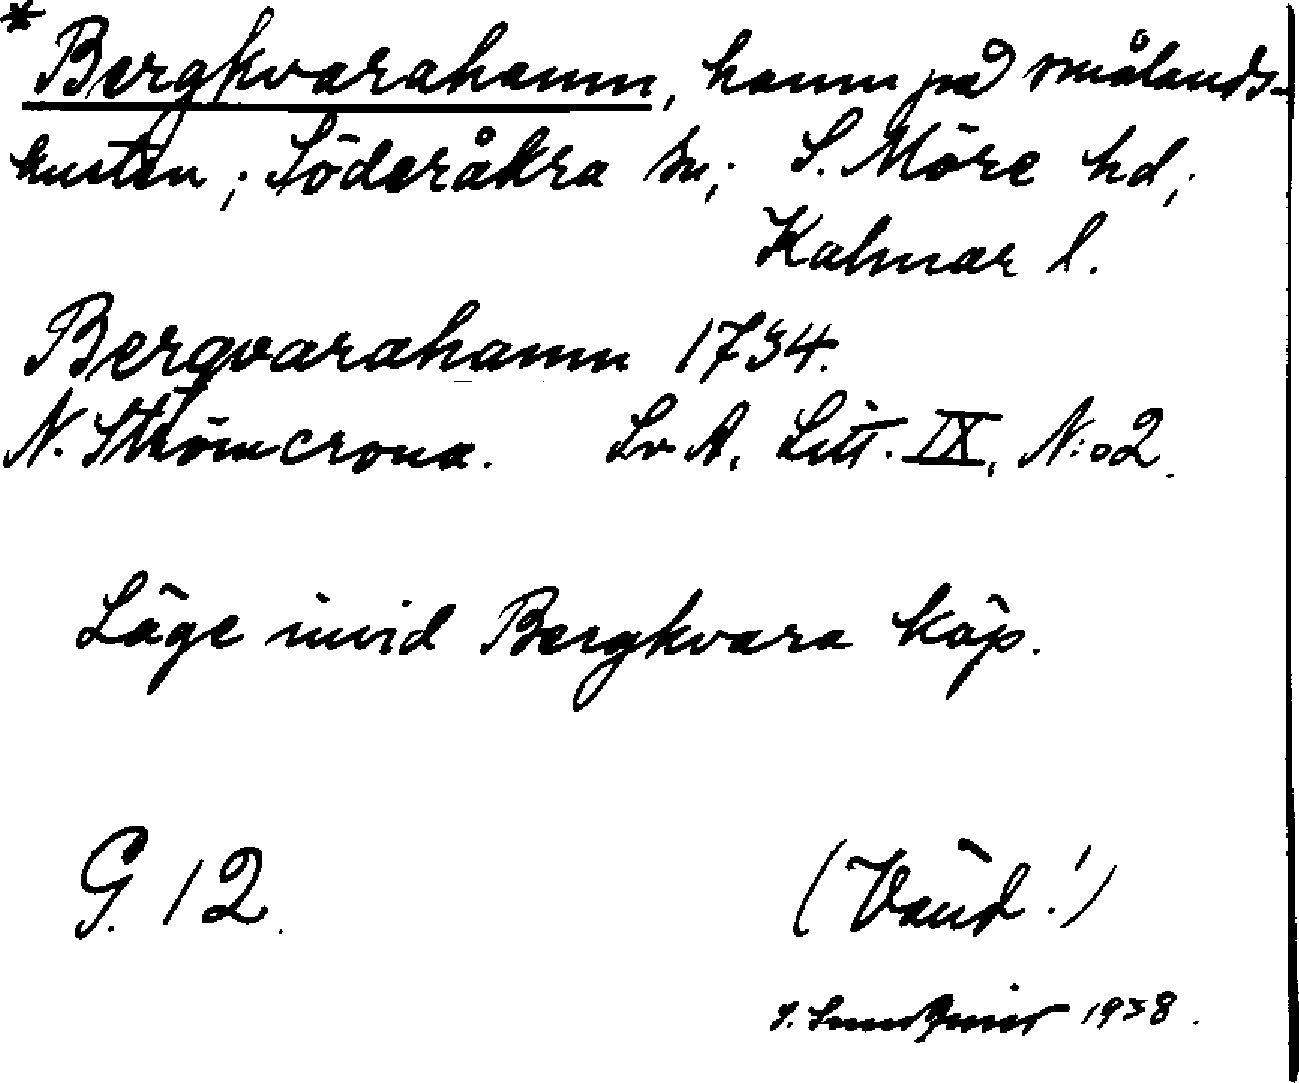 * Bergkvarahamn, hamn på smålands-
kusten; Söderåkra sn; S. Möre hd;
Kalmar l.
Bergvarahamn 1734.
N. Strömcrona. Lv A. Litt. IX, N:o 2.
Läge invid Bergkvara köp.
G. 12.
(Vänd!)
1938.